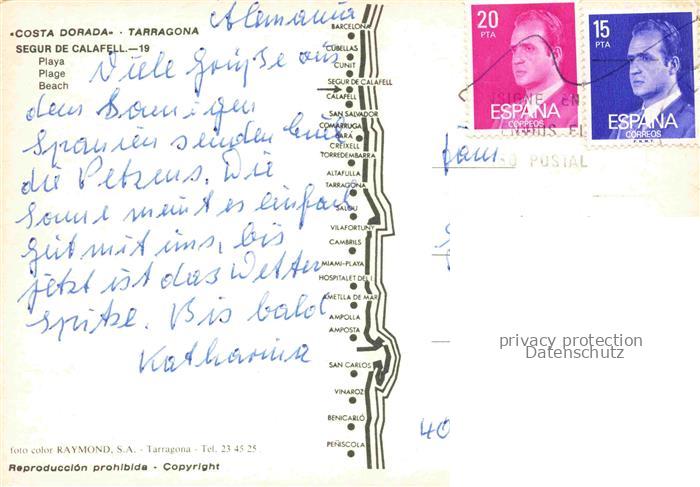 Alemania
«COSTA DORADA» - TARRAGONA
SEGUR DE CALAFELL.—19
Playa
Plage
Beach
Viele Grüße aus
dem Sonnigen
Spanien senden Euch
die Petzens. Die
Sonne meint es einfach
gut mit uns, bis
jetzt ist das Wetter
Spitze. Bis bald
Katharina
foto color RAYMOND, S.A. - Tarragona - Tel. 23 45 25
Reproducción prohibida - Copyright
BARCELONA
CUBELLAS
CUNIT
SEGUR DE CALAFELL
CALAFELL
SAN SALVADOR
COMARRUGA
BARA
CREIXELL
TORREDEMBARRA
ALTAFULLA
TARRAGONA
SALOU
VILAFORTUNY
CAMBRILS
MIAMI-PLAYA
HOSPITALET DEL I.
AMETLLA DE MAR
AMPOLLA
AMPOSTA
SAN CARLOS
VINAROZ
BENICARLÓ
PEÑISCOLA
20
PTA
ESPAÑA
CORREOS
15
PTA
ESPAÑA
CORREOS
F.N.M.T.
POSTAL
Fam.
40
privacy protection
Datenschutz